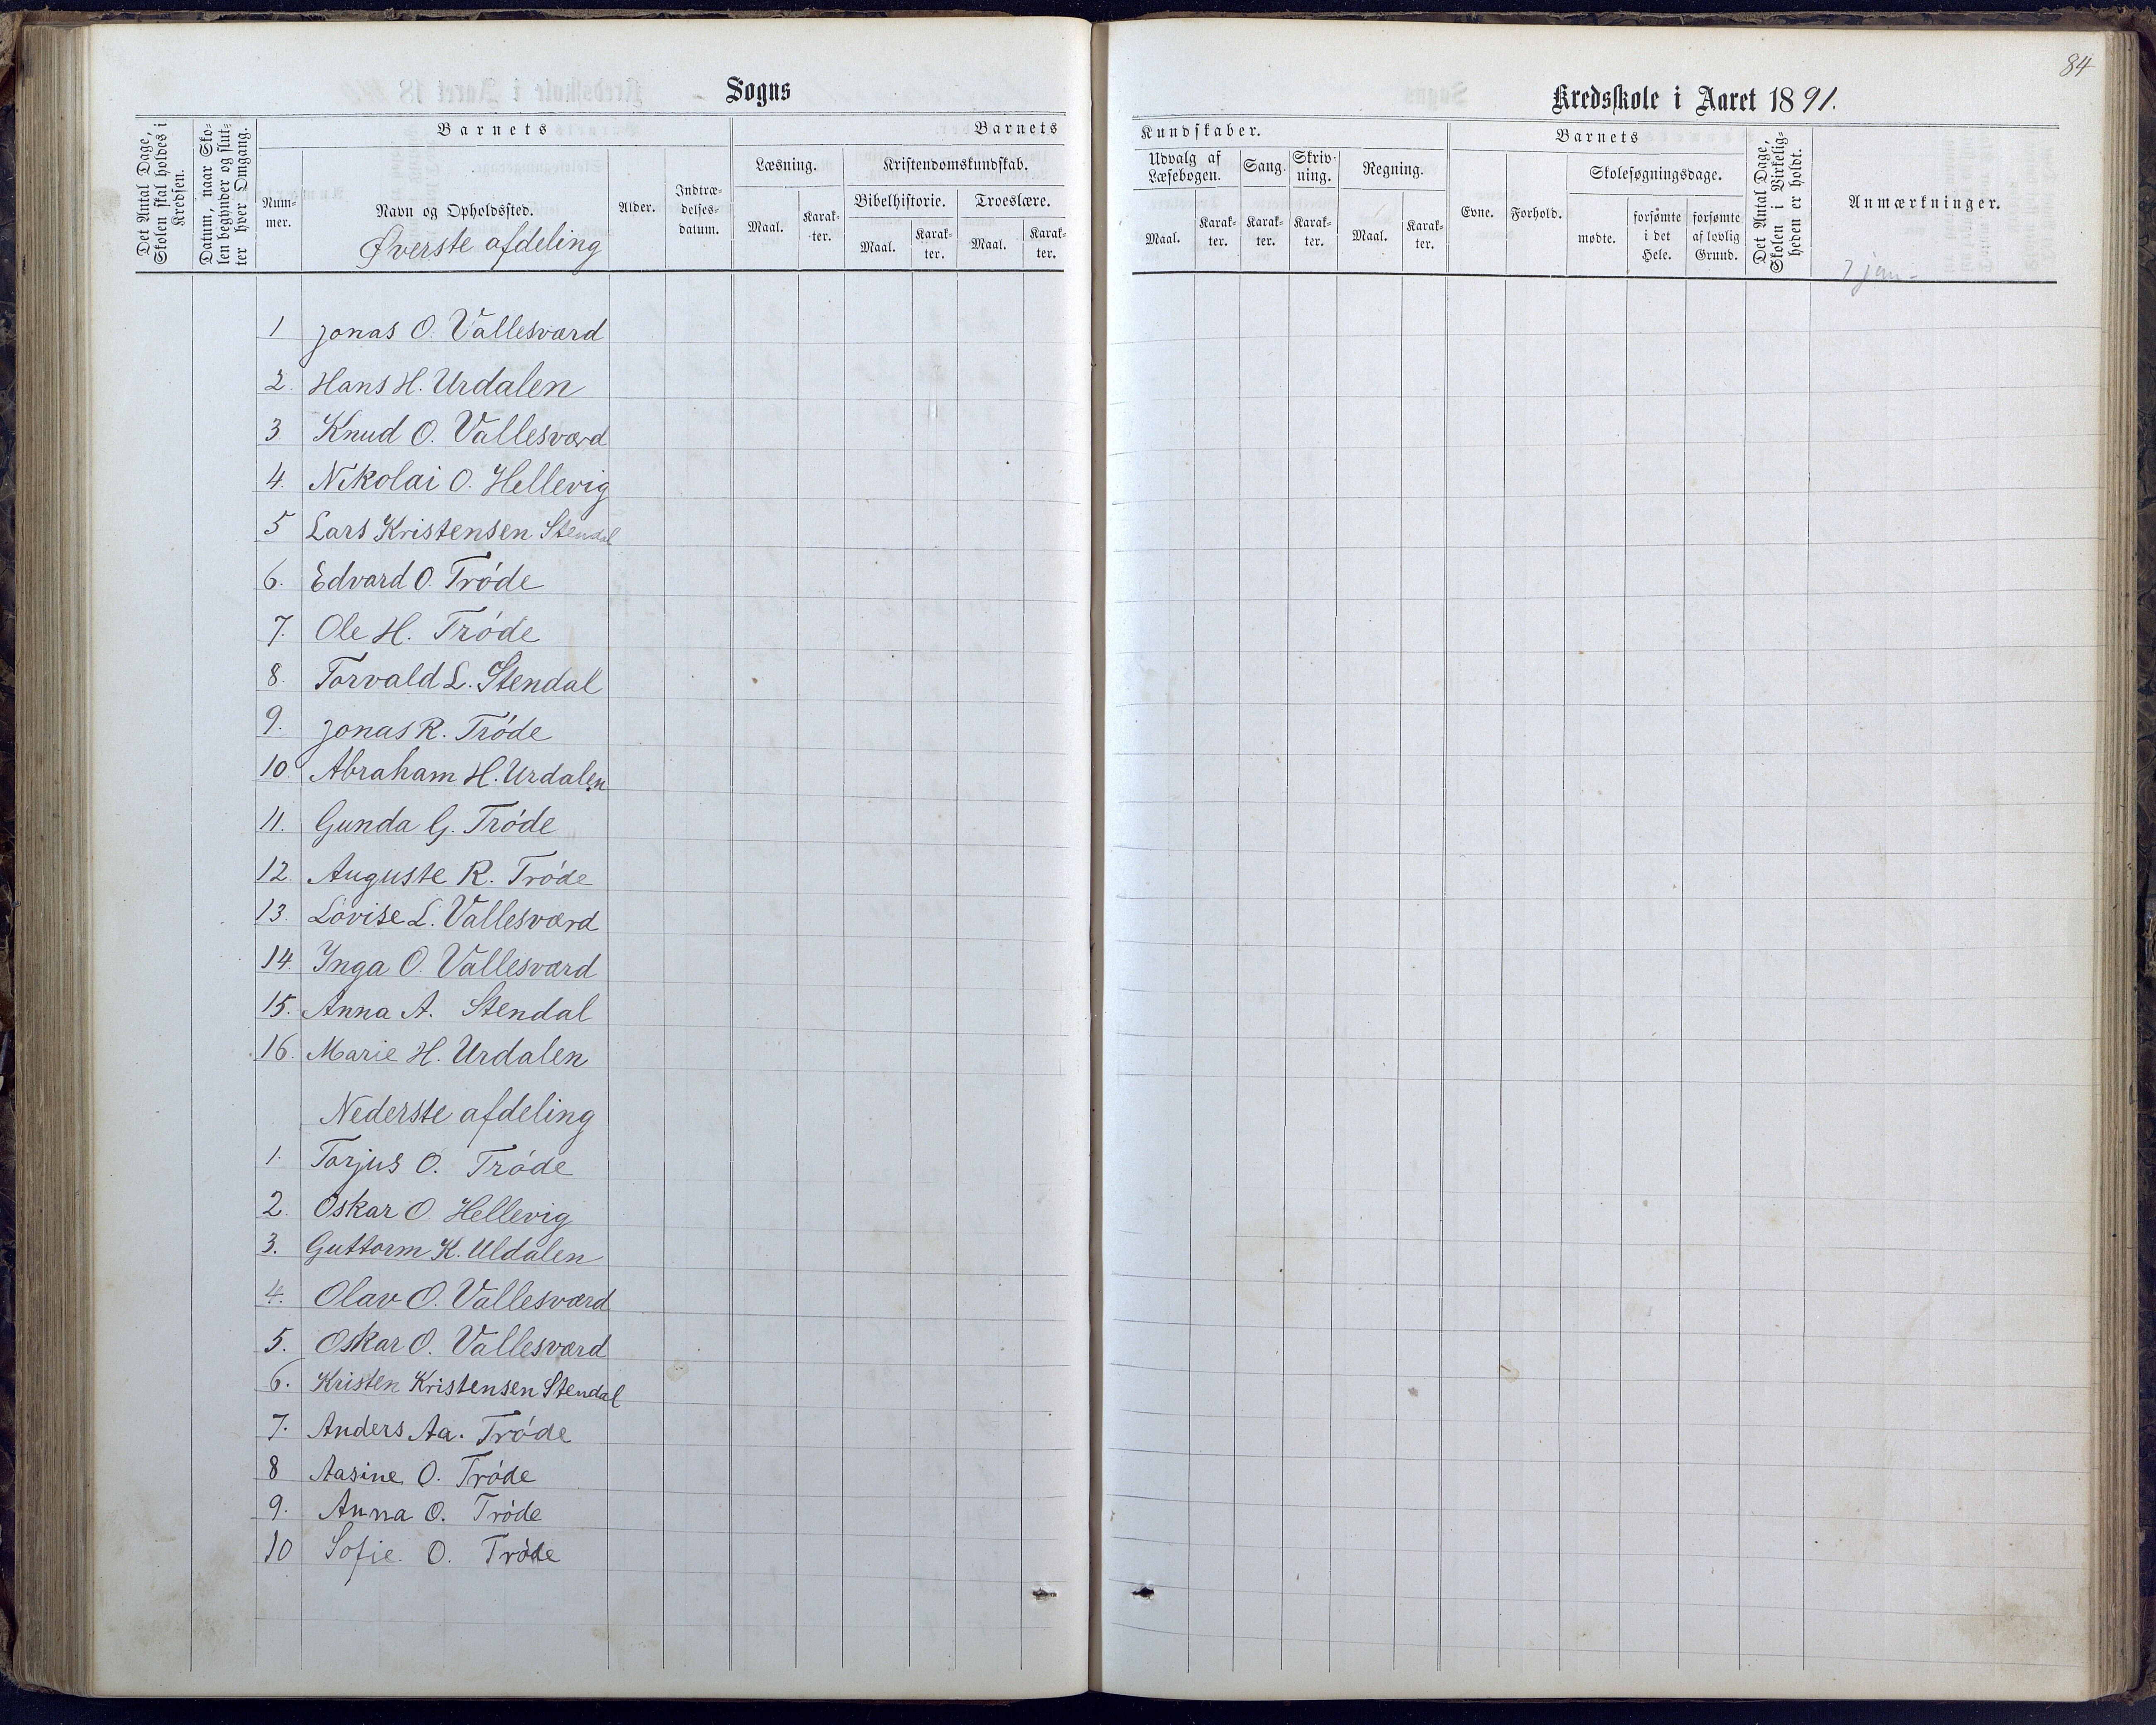 84
Sogns
Kredsskole i Aaret 1891.
Det Antal Dage, Skolen skal holdes i Kredsen.
Datum, naar Skolen begynder og slutter hver Omgang.
Barnets
Nummer.
Navn og Opholdssted.
Øverste afdeling
Alder.
Indtrædelsesdatum.
Barnets
Læsning.
Maal.
Karakter.
Kristendomskundskab.
Bibelhistorie.
Maal.
Karakter.
Troeslære.
Maal.
Karakter.
Kundskaber.
Udvalg af Læsebogen.
Maal.
Karakter.
Sang.
Karakter.
Skrivning.
Karakter.
Regning.
Maal.
Karakter.
Barnets
Evne.
Forhold.
Skolesøgningsdage.
mødte.
forsømte i det Hele.
forsømte af lovlig Grund.
Det Antal Dage, Skolen i Virkeligheden er holdt.
Anmærkninger.
7 jan-
1 Jonas O. Vallesværd
2. Hans H. Urdalen
3. Knud O. Vallesværd
4. Nikolai O. Hellevig
5 Lars Kristensen Stendal
6. Edvard O. Trøde
7. Ole H. Trøde
8. Torvald L. Stendal
9. Jonas R. Trøde
10 Abraham H. Urdalen
11. Gunda G. Trøde
12. Auguste R. Trøde
13. Lovise L. Vallesværd
14. Inga O. Vallesværd
15. Anna A. Stendal
16. Marie H. Urdalen
Nederste afdeling
1. Torjus O. Trøde
2. Oskar O Hellevig
3. Guttorm K. Uldalen
4. Olav O. Vallesværd
5. Oskar O. Vallesværd
6. Kristen Kristensen Stendal
7. Anders Aa. Trøde
8 Aasine O. Trøde
9. Anna O. Trøde
10 Sofie. O. Trøde